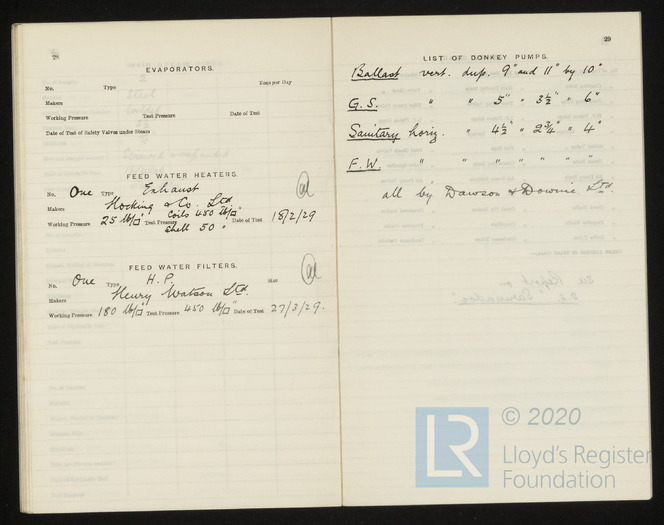 28
EVAPORATORS.
No. Type Tons per Day
Makers
Working Pressure Test Pressure Date of Test
Date of Test of Safety Valves under Steam
FEED WATER HEATERS.
No. One Type Exhaust
Makers Hocking & Co. Ltd
Working Pressure 25 lb/□" Test Pressure Coils 450 lb/□" Date of Test 18/2/29
Shell 50 "
FEED WATER FILTERS.
No. One Type H.P. Size
Makers Henry Watson Ltd.
Working Pressure 180 lb/□" Test Pressure 450 lb/□" Date of Test 27/3/29.
29
LIST OF DONKEY PUMPS.
Ballast vert. dup. 9" and 11" by 10"
G.S. " " 5" " 3½" " 6"
Sanitary horiz. " 4½" " 2¾" " 4"
F.W. " " " " " " "
all by Dawson & Downie Ltd.
LR © 2020
Lloyd's Register
Foundation